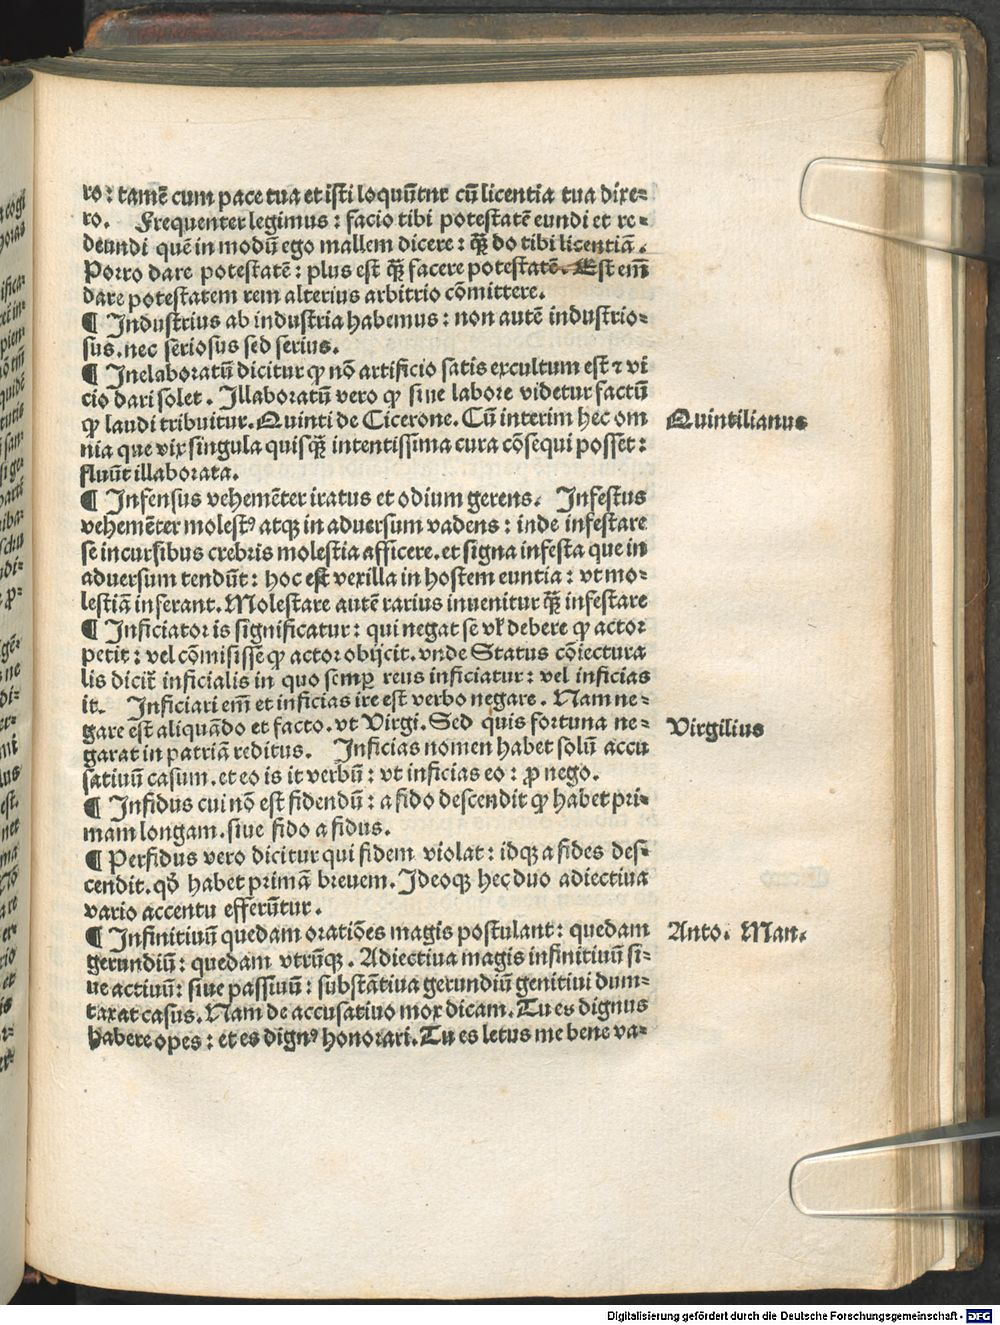 ro: tamē cum pace tua et isti loquūtur cū licentia tua dixe-
ro. Frequenter legimus: facio tibi potestatē eundi et re-
deundi quē in modū ego mallem dicere: q̄ꝫ do tibi licentiā.
Porro dare potestatē: plus est q̄ꝫ facere potestatē. Est em̄
dare potestatem rem alterius arbitrio cōmittere.
¶ Industrius ab industria habemus: non autē industrio-
sus. nec seriosus sed serius.
¶ Inelaboratū dicitur ꝙ nō artificio satis excultum est ⁊ vi
cio dari solet. Illaboratū vero ꝙ sine labore videtur factū
ꝙ laudi tribuitur. Quinti de Cicerone. Cū interim hec om
nia que vix singula quisq̄ꝫ intentissima cura cōsequi posset:
fluūt illaborata.
Quintilianus
¶ Infensus vehemēter iratus et odium gerens. Infestus
vehemēter molestꝰ atqꝫ in aduersum vadens: inde infestare
se incursibus crebris molestia afficere. et signa infesta que in
aduersum tendūt: hoc est vexilla in hostem euntia: vt mo-
lestiā inferant. Molestare autē rarius inuenitur q̄ꝫ infestare
¶ Inficiator is significatur: qui negat se vl' debere ꝙ actor
petit: vel cōmisisse ꝙ actor obijcit. vnde Status cōiectura
lis dicit̄ inficialis in quo semꝑ reus inficiatur: vel inficias
it. Inficiari em̄ et inficias ire est verbo negare. Nam ne-
gare est aliquādo et facto. vt Virgi. Sed quis fortuna ne-
garat in patriā reditus. Inficias nomen habet solū accu
satiuū casum. et eo is it verbū: vt inficias eo: ꝓ nego.
Virgilius
¶ Infidus cui nō est fidendū: a fido descendit ꝙ habet pri-
mam longam. siue fido a fidus.
¶ Perfidus vero dicitur qui fidem violat: idqꝫ a fides des-
cendit. qd̄ habet primā breuem. Ideoqꝫ hec duo adiectiua
vario accentu efferūtur.
¶ Infinitiuū quedam oratiōes magis postulant: quedam
gerundiū: quedam vtrūqꝫ. Adiectiua magis infinitiuū si-
ue actiuū: siue passiuū: substātiua gerundiū genitiui dum-
taxat casus. Nam de accusatiuo mox dicam. Tu es dignus
habere opes: et es dignꝰ honorari. Tu es letus me bene va-
Anto. Man.
Digitalisierung gefördert durch die Deutsche Forschungsgemeinschaft - DFG